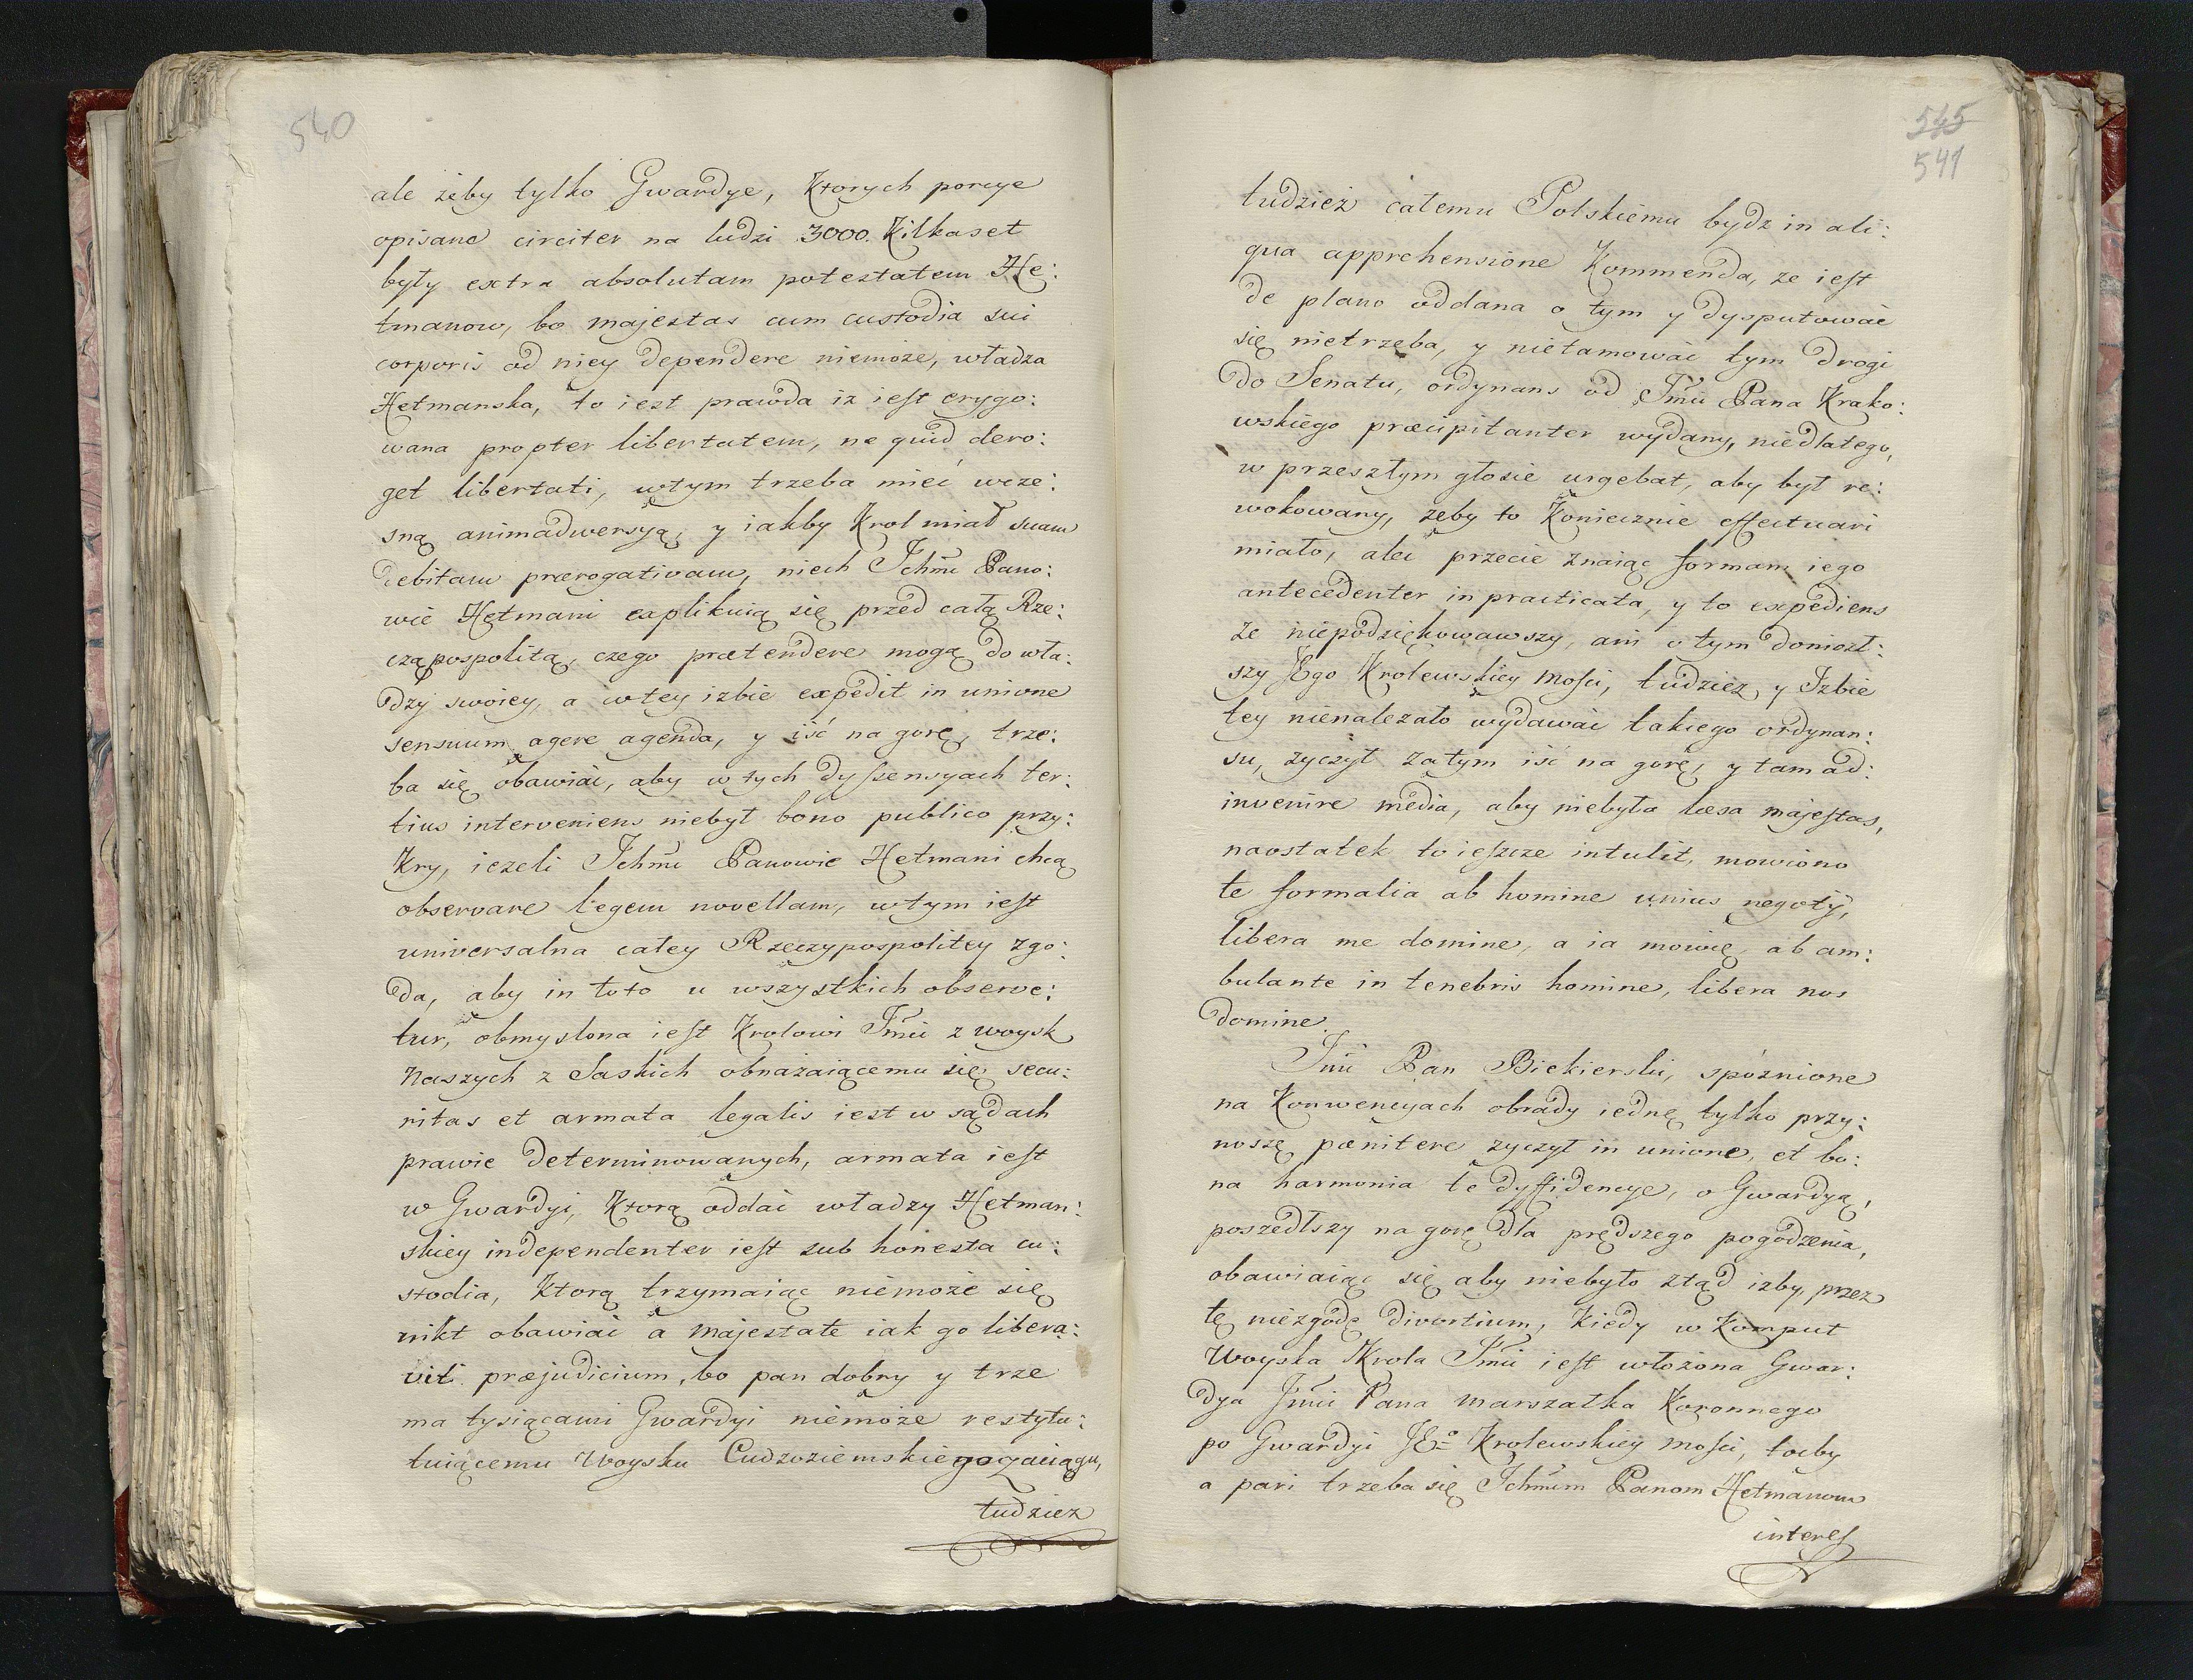 540
ale żeby tylko Gwardye, Ktorych porcye
opisane circiter na ludzi 3000. Kilkaset
były extra absolutam potestatem He:
tmanow, bo majestas cum custodia sui
corporis od niey dependere niemoże, władza
Hetmanska, to iest prawda iz iest erygo:
wana propter libertatem, ne quid dero:
get libertati, wtym trzeba mieć wcze:
sną animadwersyą, y iakby Krol miał suam
debitam prærogativam, niech Ichmć Pano:
wie Hetmani explikuią się przed całą Rze:
cząpospolitą, czego prætendere mogą do wła:
dzy swoiey, a wtey izbie expedit in unione
sensuum agere agenda, y iść na gorę, trze:
ba się obawiać, aby w tych dyssensyach ter:
tius interveniens niebył bono publico przy:
Kry, iezeli Ichmć Panowie Hetmani chcą
observare legem novellam, wtym iest
universalna całey Rzeczypospolitey zgo:
da, aby in toto u wszystkich observe:
tur, obmyslona iest Krolowi Jmći z woysk
Naszych z Saskich obnażaiącemu się secu:
ritas et armata legalis iest w sądach
prawie determinowanych, armata iest
w Gwardyi, Ktorą oddać władzy Hetman:
skiey independenter iest sub honesta cu:
stodia, Ktorą trzymaiąc niemoże się
nikt obawiać a Majestate iak go libera:
vit præjudicium, bo pan dobry y trze
ma tysiącami Gwardyi niemoże restytu:
tuiącemu Woysku Cudzoziemskiego zaciągu,
tudziez
545
541
tudzież całemu Polskiemu bydz in ali:
qua apprehensione Kommenda, ze iest
de plano oddana o tym y dysputować
się nietrzeba, y nietamować tym drogi
do Senatu, ordynans od Jmći Pana Krako:
wskiego præcipitanter wydany, niedlatego,
w przeszłym głosie urgebat, aby był re:
wokowany, zeby to Koniecznie effectuari
miało, ale przecie znaiąc formam iego
antecedenter in practicata, y to expediens
ze niepodziękowawszy, ani o tym doniozł:
szy JEgo Krolewskiey Mości, tudziez y Izbie
tey nienalezało wydawać takiego ordynan:
su, zyczył zatym iść na gorę, y tam ad:
invenire media, aby niebyła læsa majestas,
naostatek to ieszcze intulit, mowiono
te formalia ab homine unius negotij,
libera me domine, a ia mowię ab am:
bulante in tenebris homine, libera nos
domine.
Jmć Pan Biekierski, spóznione
na Konwencyach obrady iednę tylko przy:
noszę pænitere zyczył in unione, et bo:
na harmonia te dyffidencye, o Gwardyą,
poszedłszy na gorę dla prędszego pogodzenia,
obawiaiąc się aby niebyło ztąd izby, przez
tę niezgodę divortium, Kiedy w Komput
Woyska Krola Jmći iest włożona Gwar:
dya Jmći Pana Marszałka Koronnego
po Gwardyi JEº Krolewskiey Mości, toćby
a pari trzeba się Ichmćm Panom Hetmanom
interes